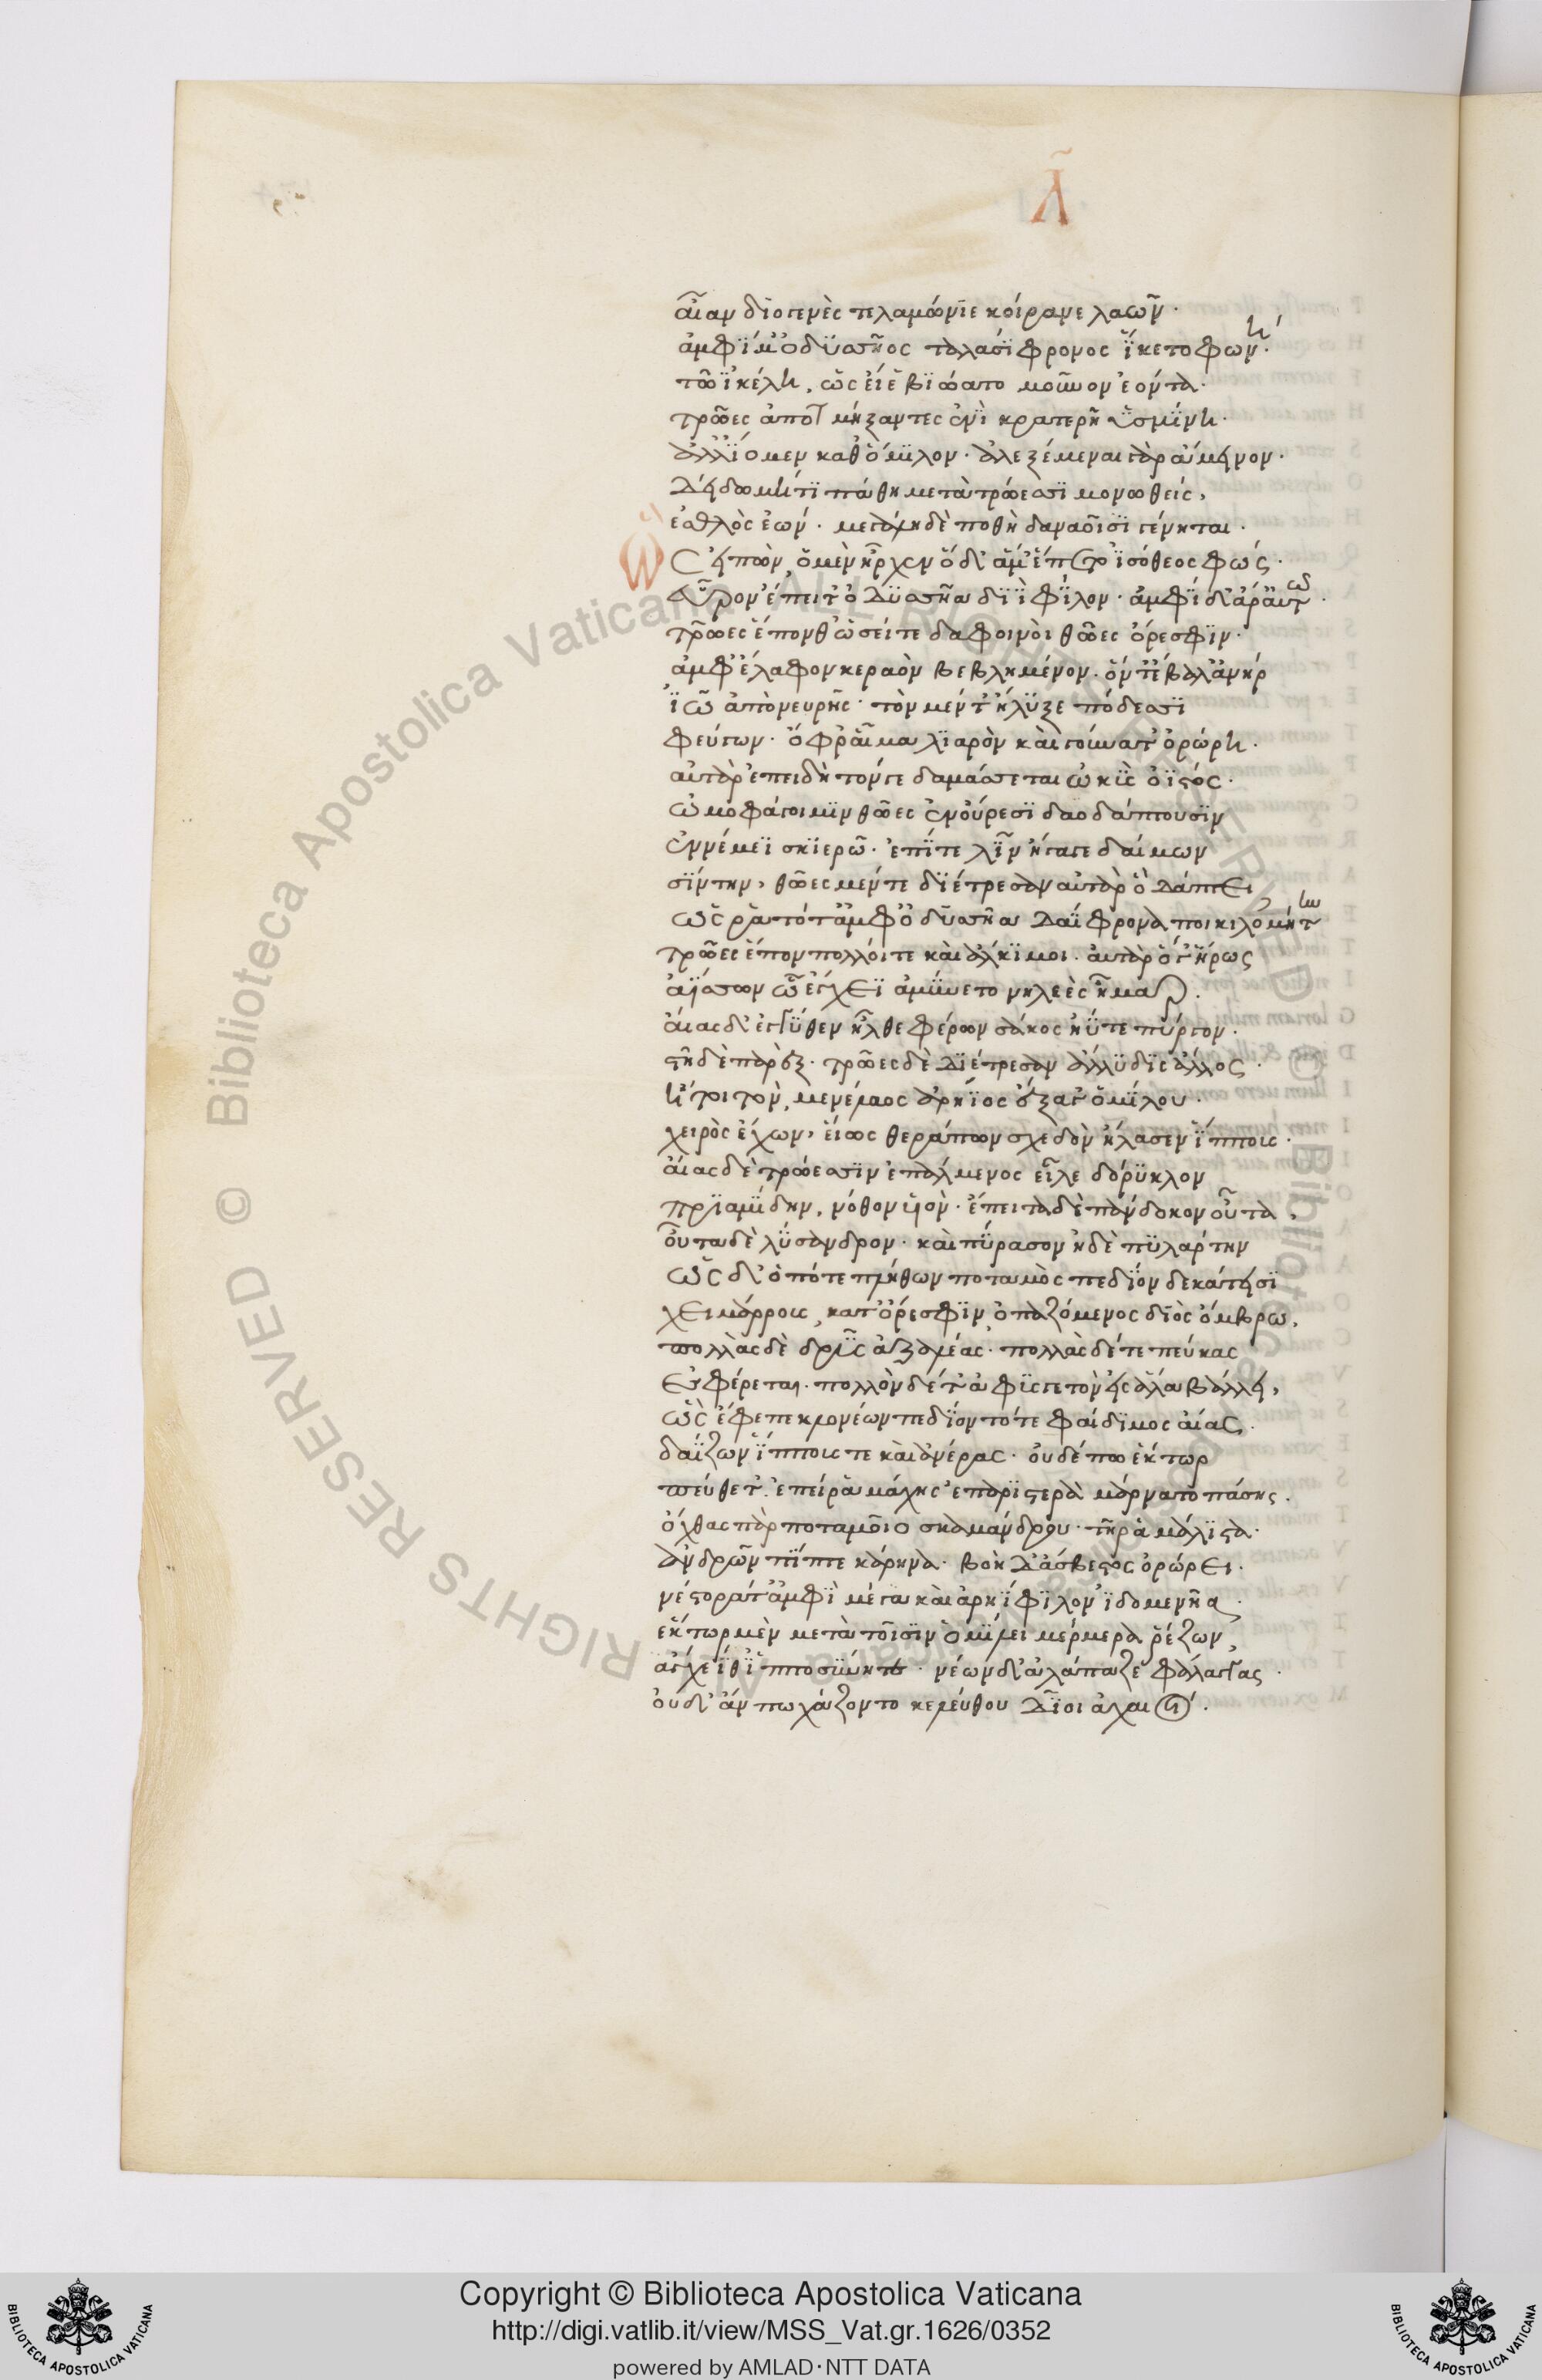 Λ
αἶαν διογενὲς τελαμώνιε κοίρανε λαῶν·
ἀμφί μ' ὀδυσσῆος ταλασίφρονος ἵκετο φωνή·
τῶ ἰκέλη, ὡς εἰ ἓ βιώατο μοῦνον ἐόντα·
τρῶες ἀποτμήξαντες ἐνὶ κρατερῆ ὑσμίνη·
ἀλλ' ἴομεν καθ' ὅμιλον· ἀλεξέμεναι γὰρ ἄμεινον·
δείδω μήτι πάθη μετὰ τρώεσσι μονωθείς,
ἐσθλὸς ἐών· μεγάλη δὲ ποθὴ δαναοῖσι γένηται·
Ὣς εἰπὼν, ὁ μὲν ἦρχεν ὁ δ' ἅμ' ἕπετο ἰσόθεος φώς·
εὗρον ἔπειτ' ὀδυσσῆα διῒ φίλον· ἀμφὶ δ' ἄρ' ἀυτὸν
τρῶες ἕπονθ' ὡσείτε δαφοινοὶ θῶες ὄρεσφιν·
ἀμφ' ἔλαφον κεραὸν βεβλημένον· ὅν τ' ἔβαλ' ἀνὴρ
ἰῶ ἀπὸ νευρῆς· τὸν μέν τ' ἤλυξε πόδεσσι
φεύγων· ὄφρ' αἷμα λιαρὸν καὶ γούνατ' ὀρώρη·
αὐτὰρ ἐπειδὴ τόνγε δαμάσσεται ὠκὺς ὀϊστός·
ὠμοφάγοι μιν θῶες ἐν οὔρεσι δαρδάπτουσιν
ἐν νέμεϊ σκιερῶ· ἐπί τε λῖν ἤγαγε δαίμων
σίντην, θῶες μέν τε διέτρεσαν αὐτὰρ ὁ δάπτει
ὥς ῥα τότ' ἀμφ' ὀδυσῆα δαΐφρονα ποικιλομήτην
τρῶες ἕπον πολλοί τε καὶ ἄλκιμοι· ἀυτὰρ ὅγ' ἥρως
ἀΐσσων ὧ ἔγχεϊ ἀμύνετο νηλεὲς ἦμαρ·
αἴας δ' ἐγγύθεν ἦλθε φέρων σάκος ἠΰτε πύργον·
στῆ δὲ παρὲξ· τρῶες δὲ διέτρεσαν ἄλλυδις ἄλλος·
ἤτοι τὸν, μενέλαος ἀρήϊος ἔξαγ' ὁμίλου·
χειρὸς ἔχων, εἵως θεράπων σχεδὸν ἤλασεν ἵππους·
αἴας δὲ τρώεσσιν ἐπάλμενος εἷλε δόρυκλον
πριαμίδην, νόθον υἱόν· ἔπειτα δὲ πάνδοκον οὖτα,
οὖτα δὲ λύσανδρον· καὶ πύρασον ἠδὲ πυλάρτην
ὡς δ' ὁπότε πλήθων ποταμὸς πεδίον δὲ κάτεισι
χειμάρρους, κατ' ὄρεσφιν, ὀπαζόμενος διὸς ὄμβρω,
πολλὰς δὲ δρῦς ἀζαλέας· πολλὰς δέ τε πεύκας
εσφέρεται· πολλὸν δέ τ' ἀφυσγετὸν εἰς ἅλα βάλλει,
ὣς ἔφεπε κλονέων πεδίον τότε φαίδιμος αἴας·
δαΐζων ἵππους τε καὶ ἀνέρας· οὐδέπω ἕκτωρ
πεύθετ' ἐπεί ῥα μάχης ἐπ' ἀριστερὰ μάρνατο πάσης·
ὄχθας πὰρ ποταμοῖο σκαμάνδρου· τῆ ῥα μάλιστα·
ἀνδρῶν πίπτε κάρηνα· βοὴ δ' ἄσβεστος ὀρώρει·
νέστορά τ' ἀμφὶ μέγαν καὶ ἀρηΐφιλον ἰδομενῆα·
ἕκτωρ μὲν μετὰ τοῖσιν ὁμίλει μέρμερα ῥέζων,
ἔγχεΐ θ' ἱπποσύνη τε· νέων δ' ἀλάπαζε φάλαγγας·
οὐδ' ἄν πω χάζοντο κελεύθου δῖοι ἀχαιοί·
Copyright © Biblioteca Apostolica Vaticana
http://digi.vatlib.it/view/MSS_Vat.gr.1626/0352
powered by AMLAD·NTT DATA
BIBLIOTECA APOSTOLICA VATICANA
BIBLIOTECA APOSTOLICA VATICANA